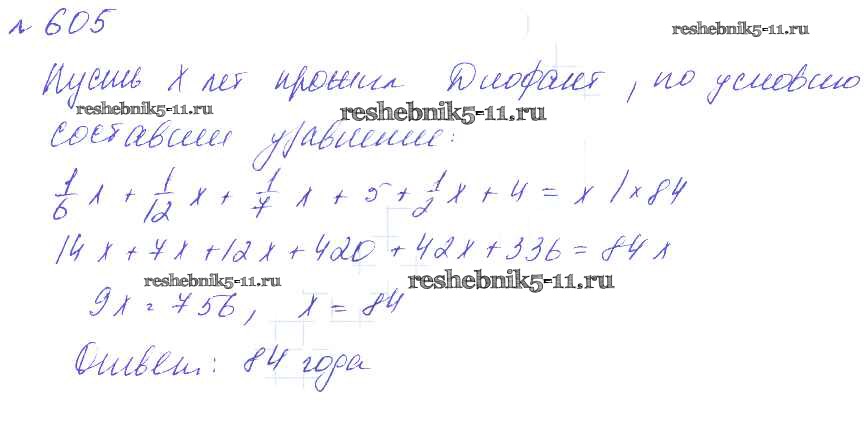 № 605
reshebnik5-11.ru
Пусть x лет прожил Диофант, по условию
reshebnik5-11.ru
reshebnik5-11.ru
составим уравнение:
1/6 x + 1/12 x + 1/7 x + 5 + 1/2 x + 4 = x | × 84
14x + 7x + 12x + 420 + 42x + 336 = 84x
reshebnik5-11.ru
reshebnik5-11.ru
9x = 756, x = 84
Ответ: 84 года